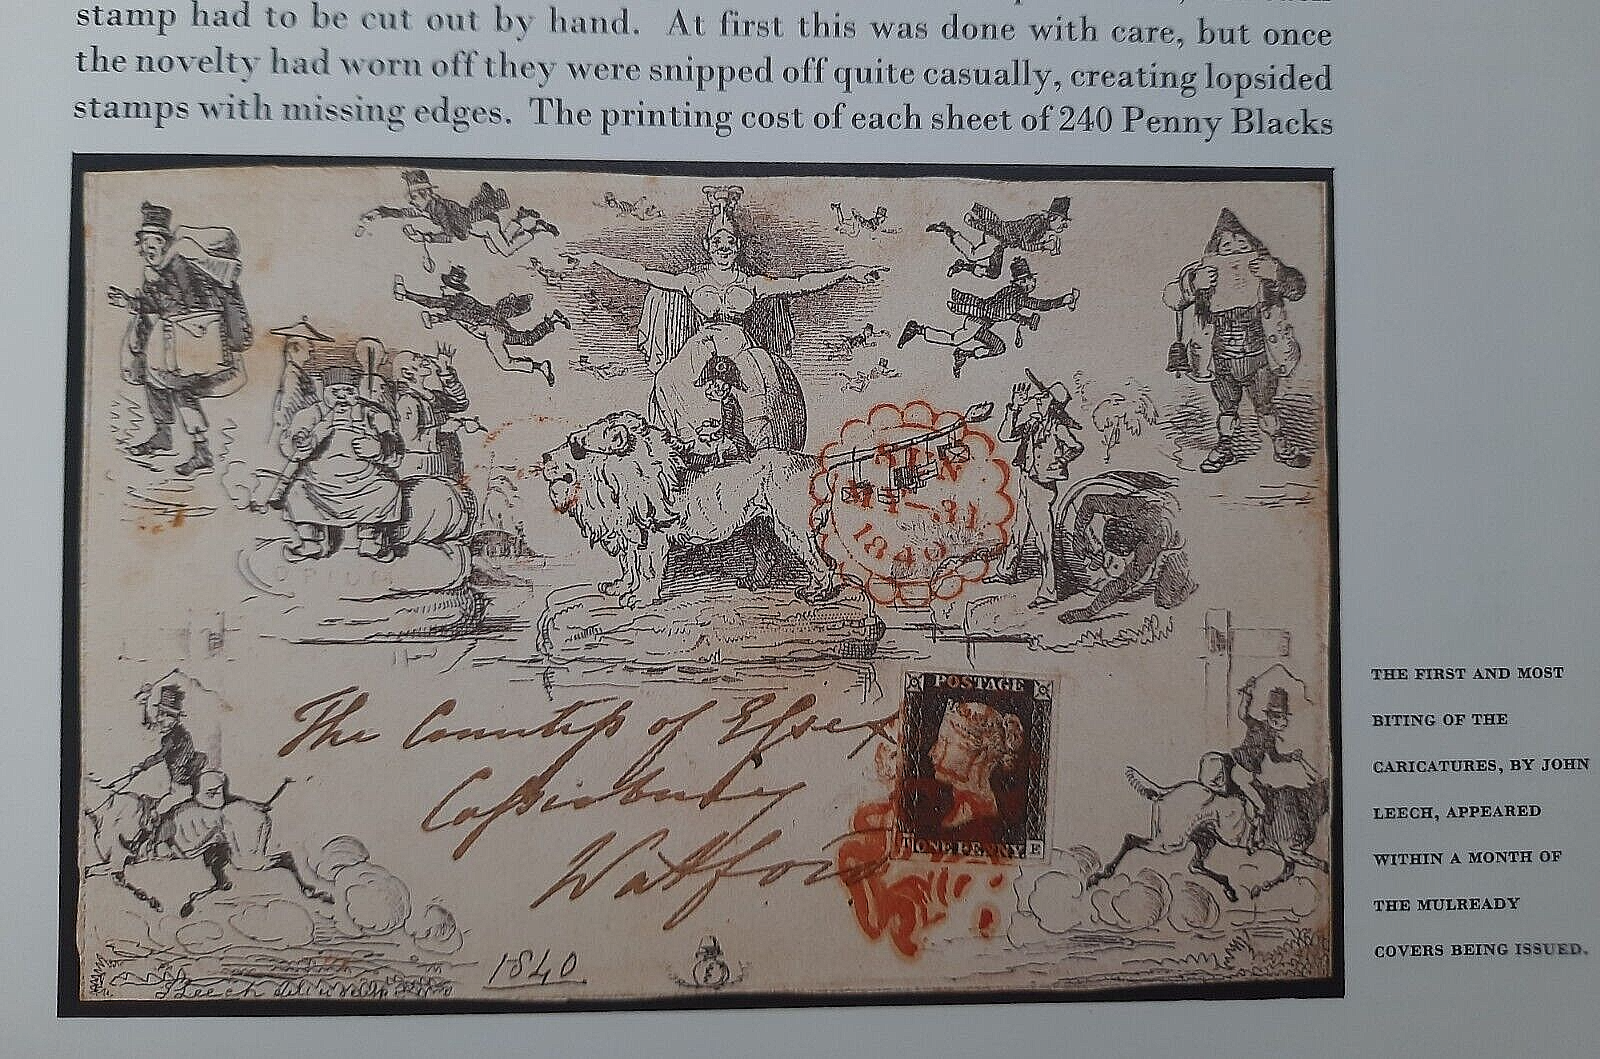 stamp had to be cut out by hand. At first this was done with care, but once
the novelty had worn off they were snipped off quite casually, creating lopsided
stamps with missing edges. The printing cost of each sheet of 240 Penny Blacks
OPIUM
MY-31
1840
The Countess of Essex
Cassiobury
Watford
POSTAGE
ONE PENNY
E
1840
THE FIRST AND MOST
BITING OF THE
CARICATURES, BY JOHN
LEECH, APPEARED
WITHIN A MONTH OF
THE MULREADY
COVERS BEING ISSUED.